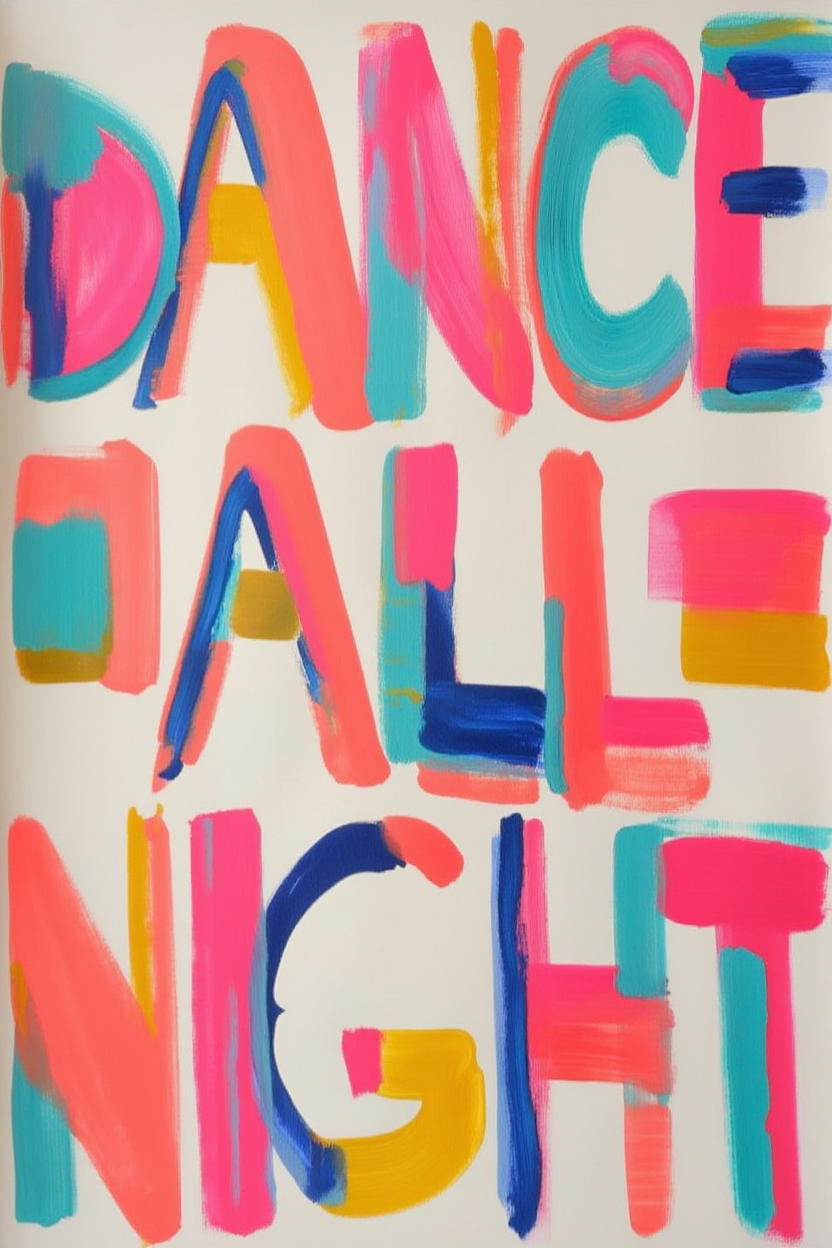 DANCE
ALL
NIGHT